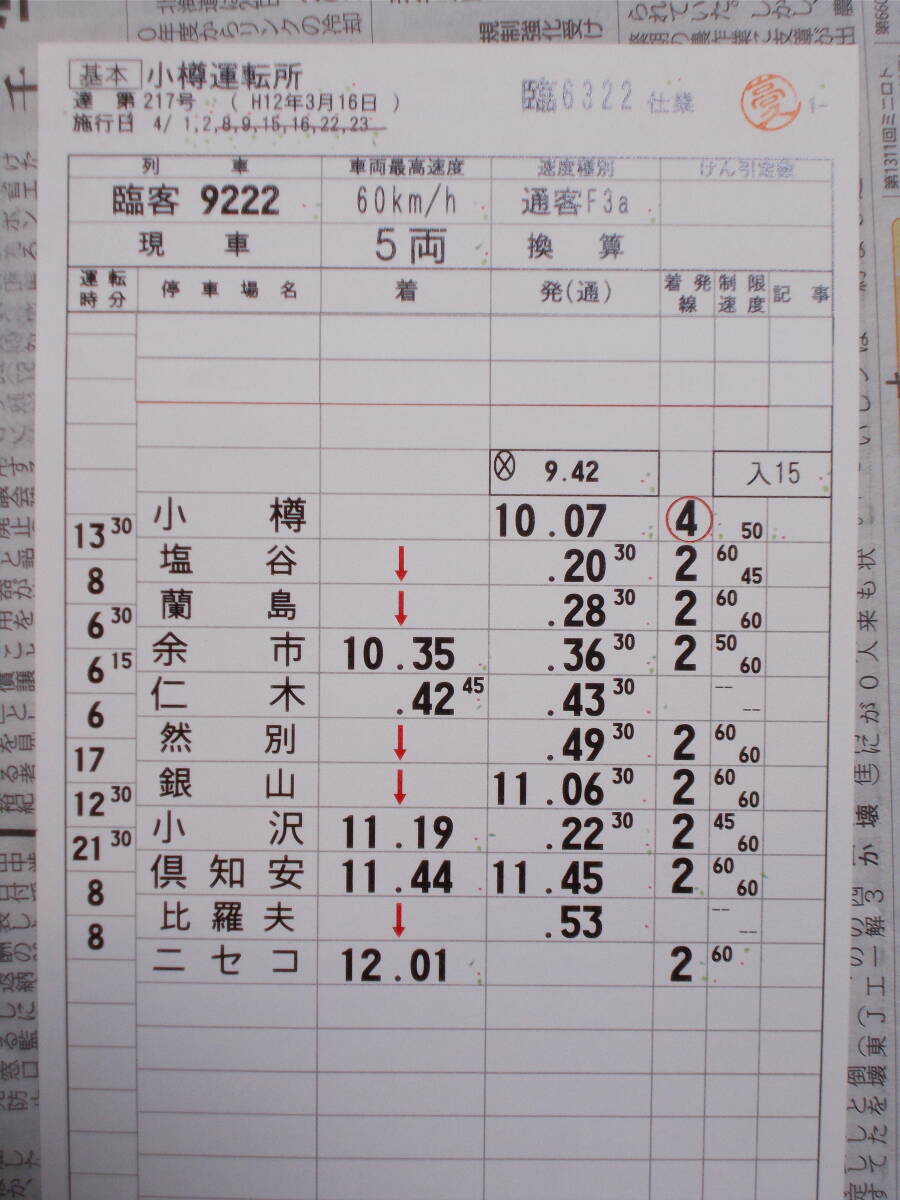 基本 小樽運転所
達 第217号 ( H12年3月16日 )
施行日 4/ 1,2,8,9,15,16,22,23
臨6322 仕業
列 車 車両最高速度 速度種別 けん引定数
臨客 9222 60km/h 通客F3a
現 車 5両 換 算
運転時分 停車場名 着 発(通) 着発線 制限速度 記事
9.42 入15
小樽 10.07 4 50
13 30
塩谷 ↓ .20 30 2 60 45
8
蘭島 ↓ .28 30 2 60 60
6 30
余市 10.35 .36 30 2 50 60
6 15
仁木 .42 45 .43 30 -- --
6
然別 ↓ .49 30 2 60 60
17
銀山 ↓ 11.06 30 2 60 60
12 30
小沢 11.19 .22 30 2 45 60
21 30
倶知安 11.44 11.45 2 60 60
8
比羅夫 ↓ .53 -- --
8
ニセコ 12.01 2 60
規制強化受け
第1311回ミニロト